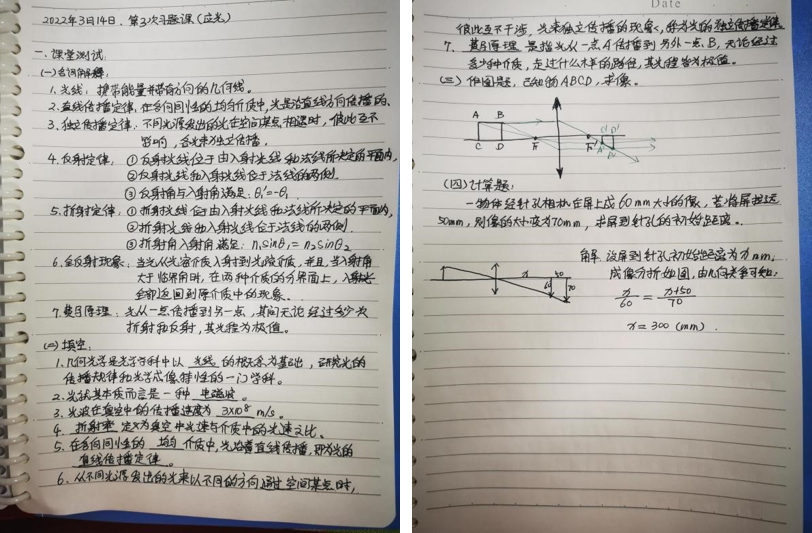 2022年3月14日. 第3次习题课(应光)
一. 课堂测试
(一) 名词解释:
1. 光线: 携带能量并带有方向的几何线。
2. 直线传播定律: 在各向同性的均匀介质中, 光是沿直线方向传播的。
3. 独立传播定律: 不同光源发出的光在空间某点相遇时, 彼此互不
影响, 各光束独立传播。
4. 反射定律: ① 反射光线位于由入射光线和法线所决定的平面内,
② 反射光线和入射光线位于法线的两侧.
③ 反射角与入射角满足: θ₁'=-θ₁
5. 折射定律: ① 折射光线位于由入射光线和法线所决定的平面内,
② 折射光线和入射光线位于法线的两侧.
③ 折射角入射角满足: n₁sinθ₁ = n₂sinθ₂
6. 全反射现象: 当光从光密介质入射到光疏介质, 并且当入射角
大于临界角时, 在两种介质的分界面上, 入射光
全部返回到原介质中的现象。
7. 费马原理: 光从一点传播到另一点, 其间无论经过多少次
折射和反射, 其光程为极值。
(二) 填空:
1. 几何光学是光学学科中以 光线 的概念为基础, 研究光的
传播规律和光学成像特性的一门学科。
2. 光就其本质而言是一种 电磁波 。
3. 光波在真空中的传播速度为 3×10⁸ m/s。
4. 折射率 定义为真空中光速与介质中的光速之比。
5. 在各向同性的 均匀 介质中, 光沿着直线传播, 即为光的
直线传播定律 。
6. 从不同光源发出的光束以不同的方向通过空间某点时,
Date
彼此互不干涉, 光束独立传播的现象, 称为光的独立传播定律
7. 费马原理 是指光从一点A传播到另外一点B, 无论经过
多少种介质, 走过什么样的路径, 其光程皆为极值。
(三) 作图题, 已知物ABCD, 求像。
A B
C D F F' C' D' A' B'
(四) 计算题:
一物体经针孔相机在屏上成60mm大小的像, 若将屏拉远
50mm, 则像的大小变为70mm, 求屏到针孔的初始距离。
解: 设屏到针孔初始距离为x mm,
成像分析如图, 由几何关系可知:
x 50 60 70
x/60 = (x+50)/70
x = 300 (mm).